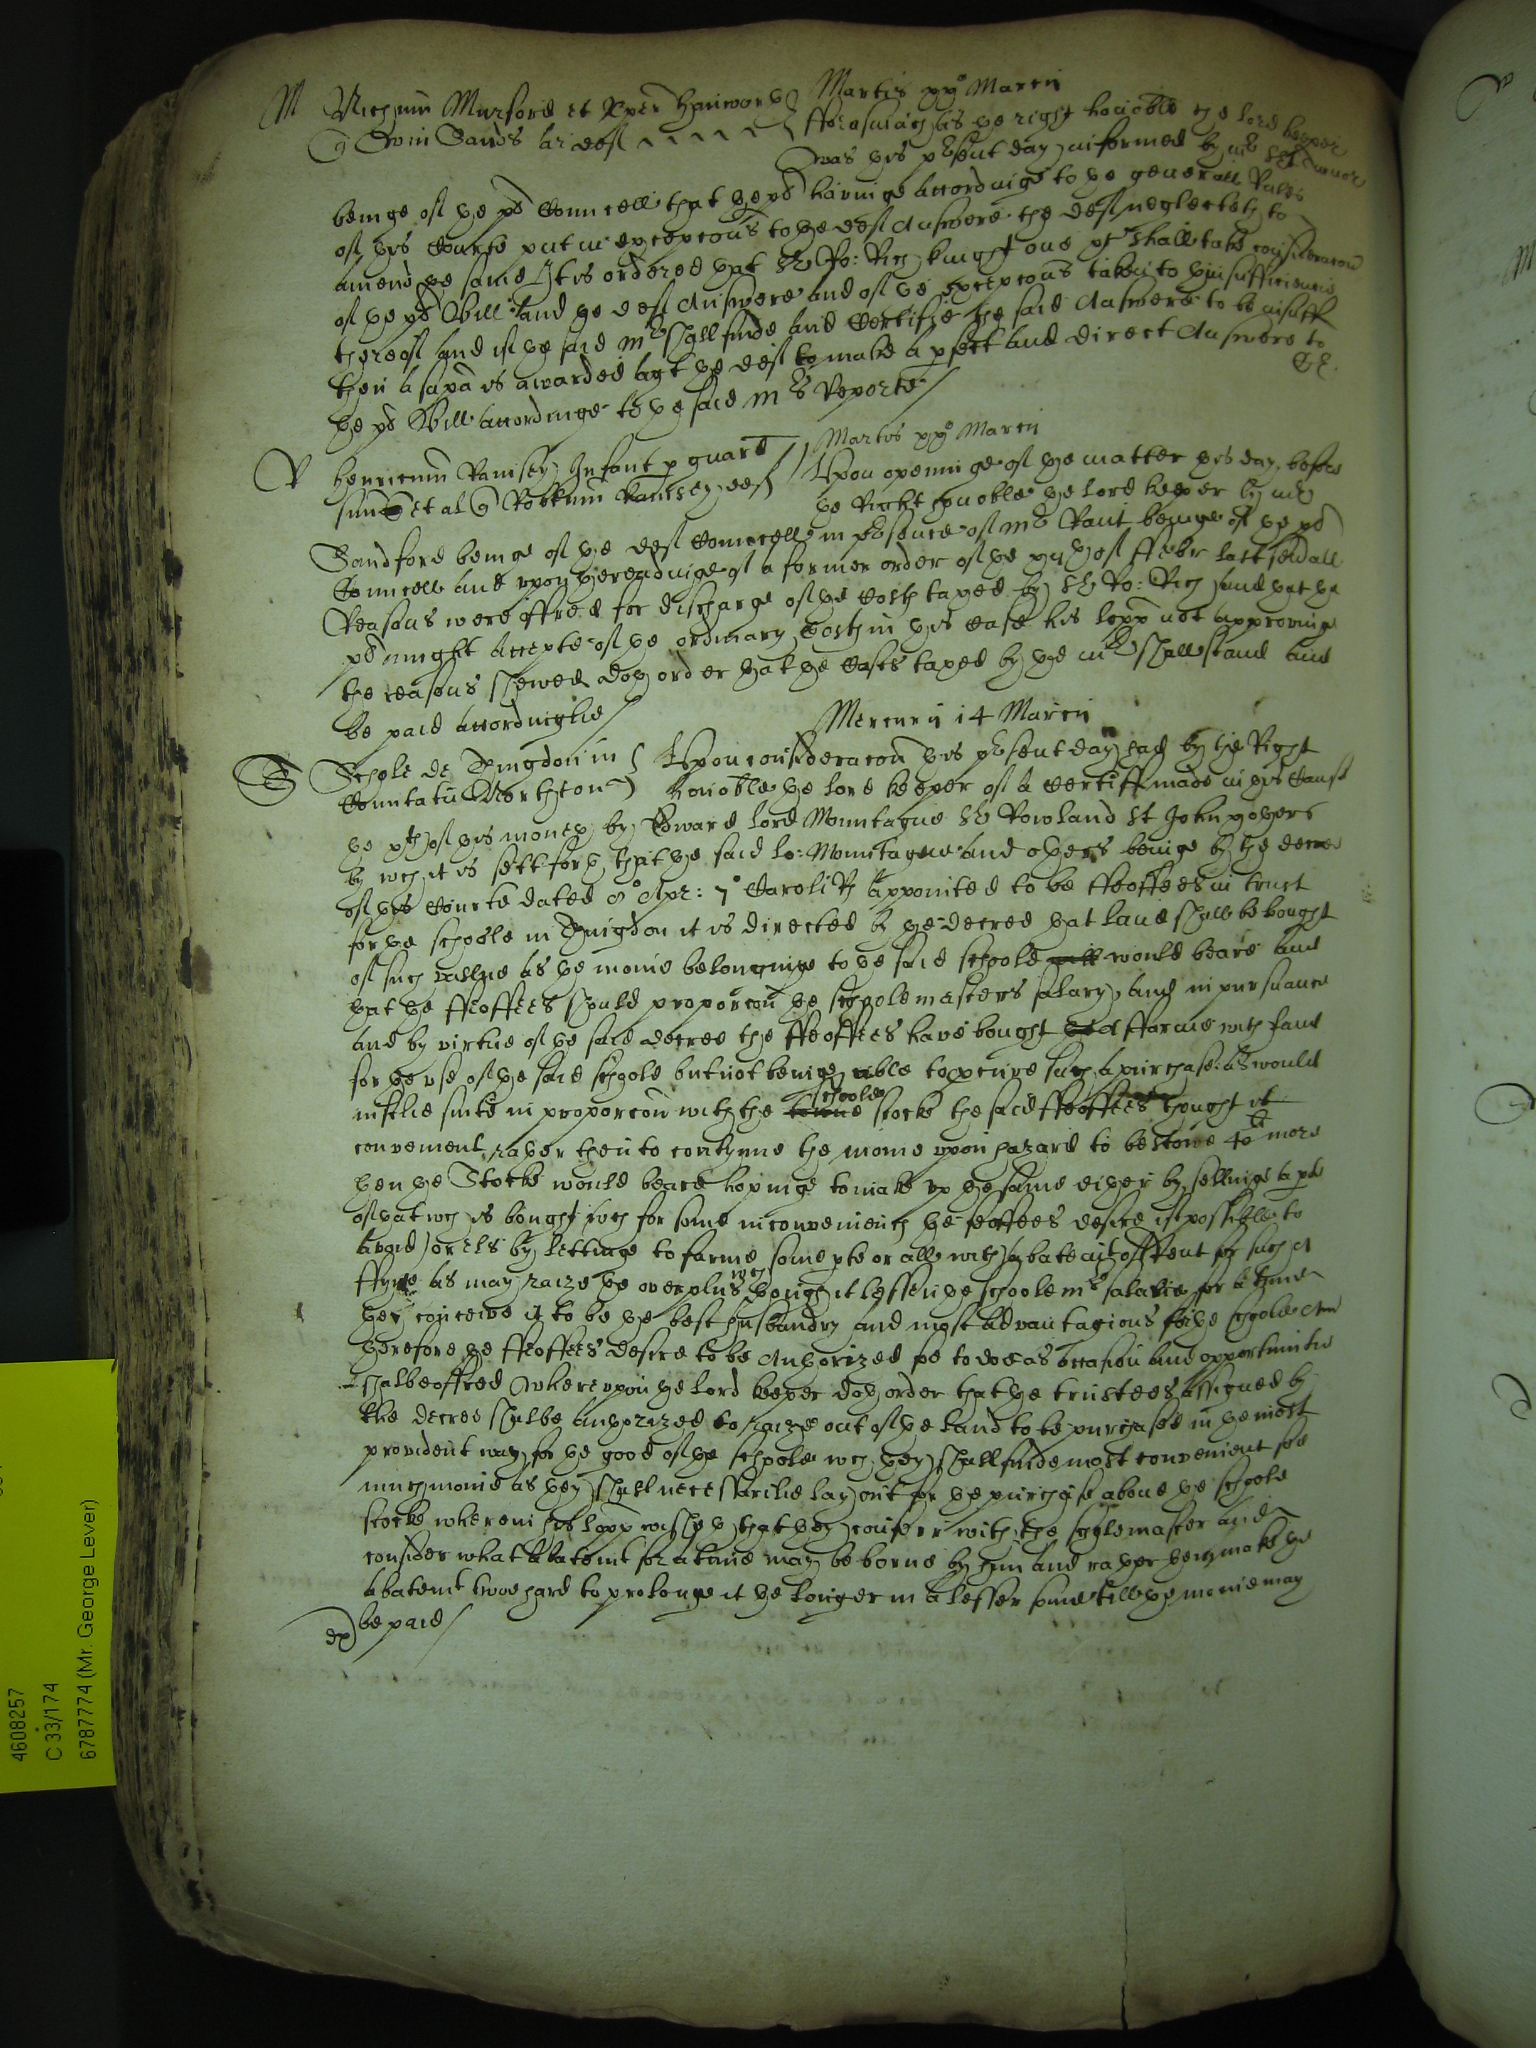 Martis xx° Marcii
M Nich'um Murford et Xpõr Hanworth
q Edwin Sands ar def Forasmuch as the right honoble the lord keeper
was this p̱sent day informed by mr
beinge of the plt Councell that the plt havinge accordinge to the generall Rules
of this Courte put in excepcons to the deft Answere the deft neglecteth to
amend the same It is ordered that Sr Ro: Rich knight one &c shall take consideracon
of the plt Bill and the deft Answere and of the excepcons taken to the insufficiencie
thereof and if the said mr shall finde and Certifie the said Answere to be insuff
then a sapa is awarded agt the deft to make a pfect and direct Answere to
the plt Bill accordinge to the said mrs Reporte
Martis xx° Marcii
R Henricum Ramsey Infant p guard
suu et al q Robtum Ramsey def Upon openinge of the matter this day before
the Right honoble the lord keeper by mr
Sandford beinge of the deft Councell in p̱sence of mr Rant beinge of the plt
Councell and upon the readinge of a former order of the of Febr last severall
Reasons were offred for discharge of the Costs taxed by Sr Ro: Rich and that the
plt might Accepte of the ordinary Costs in this case his lopp not approving
the reasons shewed doth order that the Costs taxed by the mr shall stand and
be paid accordinglie
Mercurii 14 Marcii
S Schole de Finngdon in Upon consideracon this p̱sent day had by the Right
Comitatu Northton honoble the lord keeper of a Certiff made in this Cause
the of this moneth by Edward lord Mountague Sr Rowland St John & others
by wch it is sett forth that the said lo: Mountague and others beinge by the decree
of this Courte dated Apr: 7° Caroli R appointed to be ffeoffees in trust
for the schoole in Finngdon it is directed by the decree that land shalbe bought
of such vallue as the monie belonginge to the said schoole would beare and
that the ffeoffees should proporcon the schoolemasters salary, and in pursuance
and by virtue of the said decree the ffeoffees have bought a ffarme with land
for the use of the said schoole but not beinge able to pcure such a purchase as would
iustlie suite in proporcon with the schoole stocke the said ffeoffees thought it
convenient rather then to contynue the monie upon hazard to bestowe 40 li more
then the Stocke would beare hoping to make up the same either by sellinge a pte
of that wch is bought (wch for some inconvenience the feoffees desire if possible to
avoid) or els by lettinge to farme some pte or all with abatemt of Rent for such a
ffyne as may raize the overplus wch though it lessen the schoole mrs salarie for a tyme
they conceive it to be the best husbandry and most advantagious for the schoole And
therefore the ffeoffees desire to be Authorized so to doe as occasion and opportunitie
shalbe offred Whereupon the lord keeper doth order that the trustees assigned by
the decree shalbe authorized to raize out of the land to be purchased in the most
provident way for the good of the schoole wch they shall finde most convenient soe
much monie as they shall necessarilie lay out for the purchase above the schoole
stocke wherein his lopp wisheth that they conferr with the scholemaster and
consider what abatemt for a time may be borne by him and rather then make the
abatemt twoe hard to prolonge it the longer in a lesser some till the monie may
be paid
4608257
C 33/174
6787774 (Mr. George Lever)